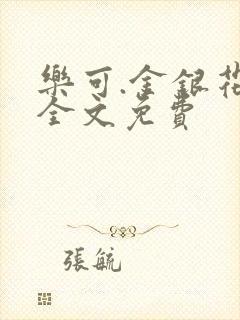 樂可.金銀花
全文免費
張毓